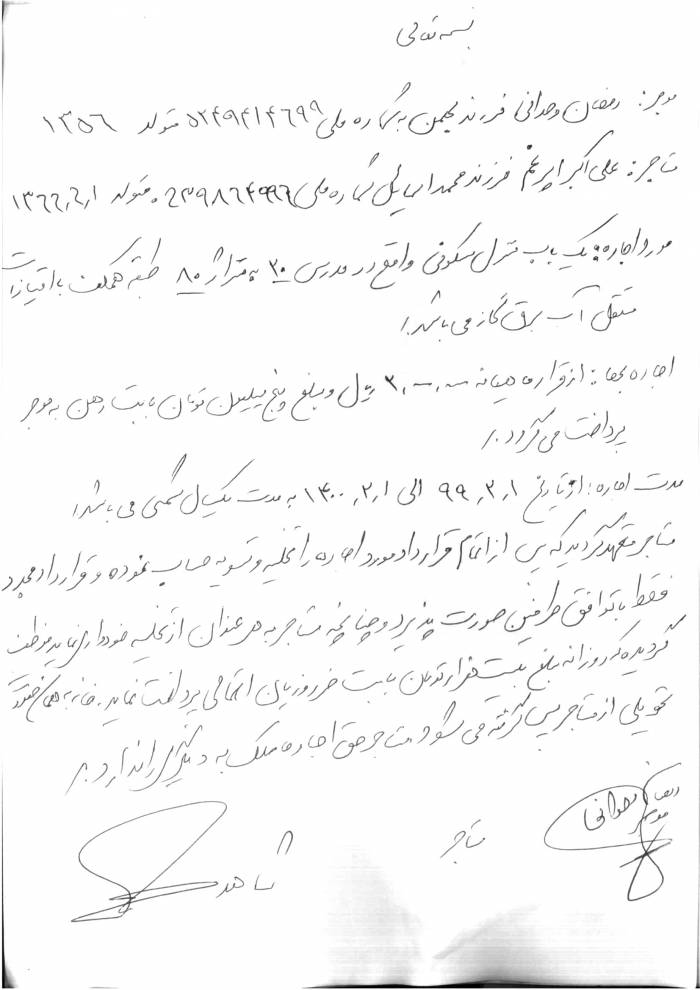 بسمه تعالی
موجر: رمضان وحدانی فرزند بهمن به شماره ملی ۵۲۴۹۴۱۴۶۹۹ متولد ۱۳۵۶
مستاجر: علی اکبر فرزند محمد اسماعیل شماره ملی متولد ۱۳۶۶٫۶٫۱
مورد اجاره: یک باب منزل مسکونی واقع در مدرس ۳۰ به متراژ ۸۰ طبقه همکف با امتیازات
مستقل آب برق گاز می باشد/
اجاره بها: از قرار ماهیانه ریال و مبلغ پنج میلیون تومان بابت رهن به موجر
پرداخت می گردد./
مدت اجاره: از تاریخ ۹۹٫۲٫۱ الی ۱۴۰۰٫۲٫۱ به مدت یکسال شمسی می باشد/
مستاجر متعهد گردید که پس از اتمام قرارداد مورد اجاره را تخلیه و تسویه حساب نموده و قرارداد مجدد
فقط با توافق طرفین صورت پذیرد و چنانچه مستاجر به هر عنوان از تخلیه خودداری نماید موظف
گردیده که روزانه مبلغ بیست هزار تومان بابت ضرر و زیان احتمالی پرداخت نماید. خانه به همان
تحویلی از مستاجر پس گرفته می شود مستاجر حق اجاره ملک به دیگری را ندارد./
موجر
مستاجر
شاهد